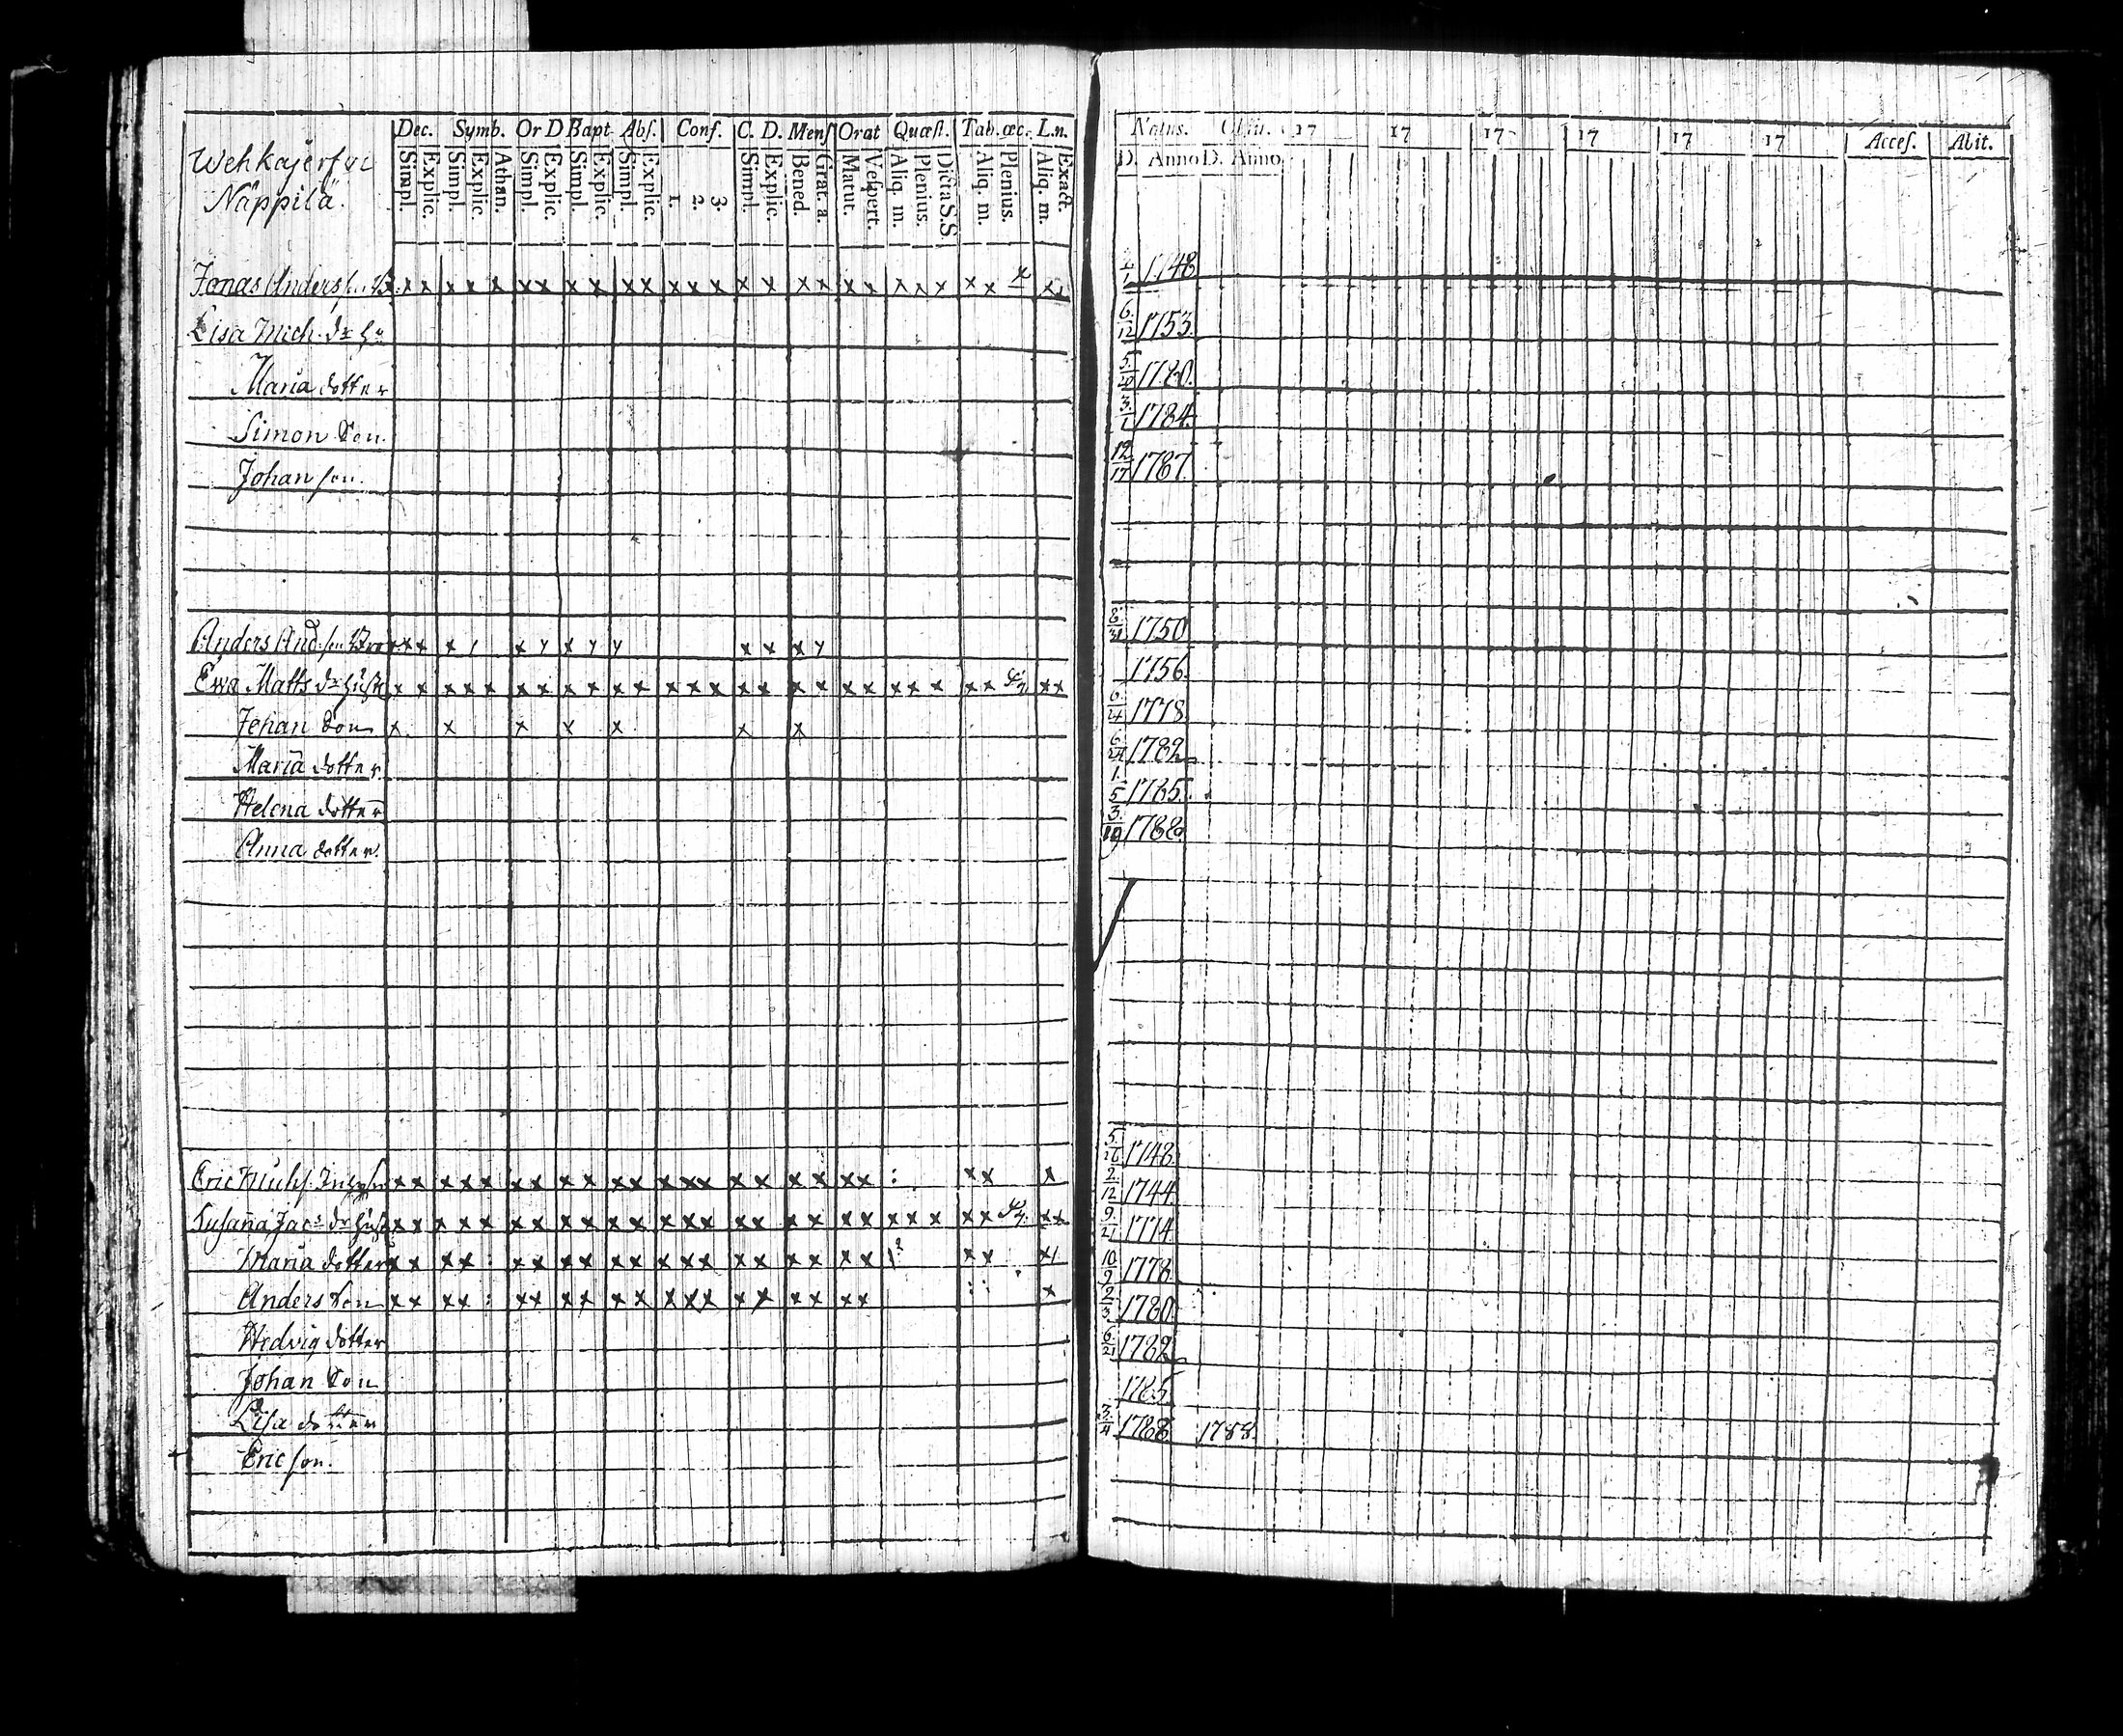 Dec. Symb. Or D Bapt Abſ. Conf. C. D. Menſ Orat Quæſt. Tab. œc. L.n.
Simpl. Explic. Simpl. Explic. Athan. Simpl. Explic. Simpl. Explic. Simpl. Explic. 1. 2. 3. Simpl. Explic. Bened. Grat. a. Matut. Veſpert. Aliq. m. Plenius. Dicta S.S. Aliq. m. Plenius. Aliq. m. Exact.
Wehkajerfvi
Näppilä.
Jonas Andersſ. x x x x x x x x x x x x x x x x x x x x x x x x x x
Lisa Mich. dr
Maria dotter
Simon Son.
Johan ſon.
Anders And. ſon x x x x y x y y x x x y
Ewa Matts dr hust x x x x x x x x x x x x x x x x x x x x x x x x x x
Johan Son x x x x x x x
Maria dotter
Helena dotter
Anna dotter.
Eric x x x x x x x x x x x x x x x x x x x x : x x x
Susana Jacs dr x x x x x x x x x x x x x x x x x x x x x x x x x x x
Maria dotter x x x x : x x x x x x x x x x x x x x x x x
Anders Son x x x x : x x x x x x x x x x x x x x x x
Hedvig dotter
Johan Son
Lisa dotter
Eric ſon.
Natus. Obiit. 17 17 17 17 17 17 Acceſ. Abit.
D. Anno D. Anno
1748
6/12 1753.
5/20 1780.
3/1 1784.
12/17 1787.
8/31 1750
1756
6/4 1778
6/21 1782
1/5 1785.
3/19 1788.
5/26 1748.
2/12 1744.
9/21 1774
10/9 1778
2/3 1780
6/21 1782
1785
3/4 1788. 1788.